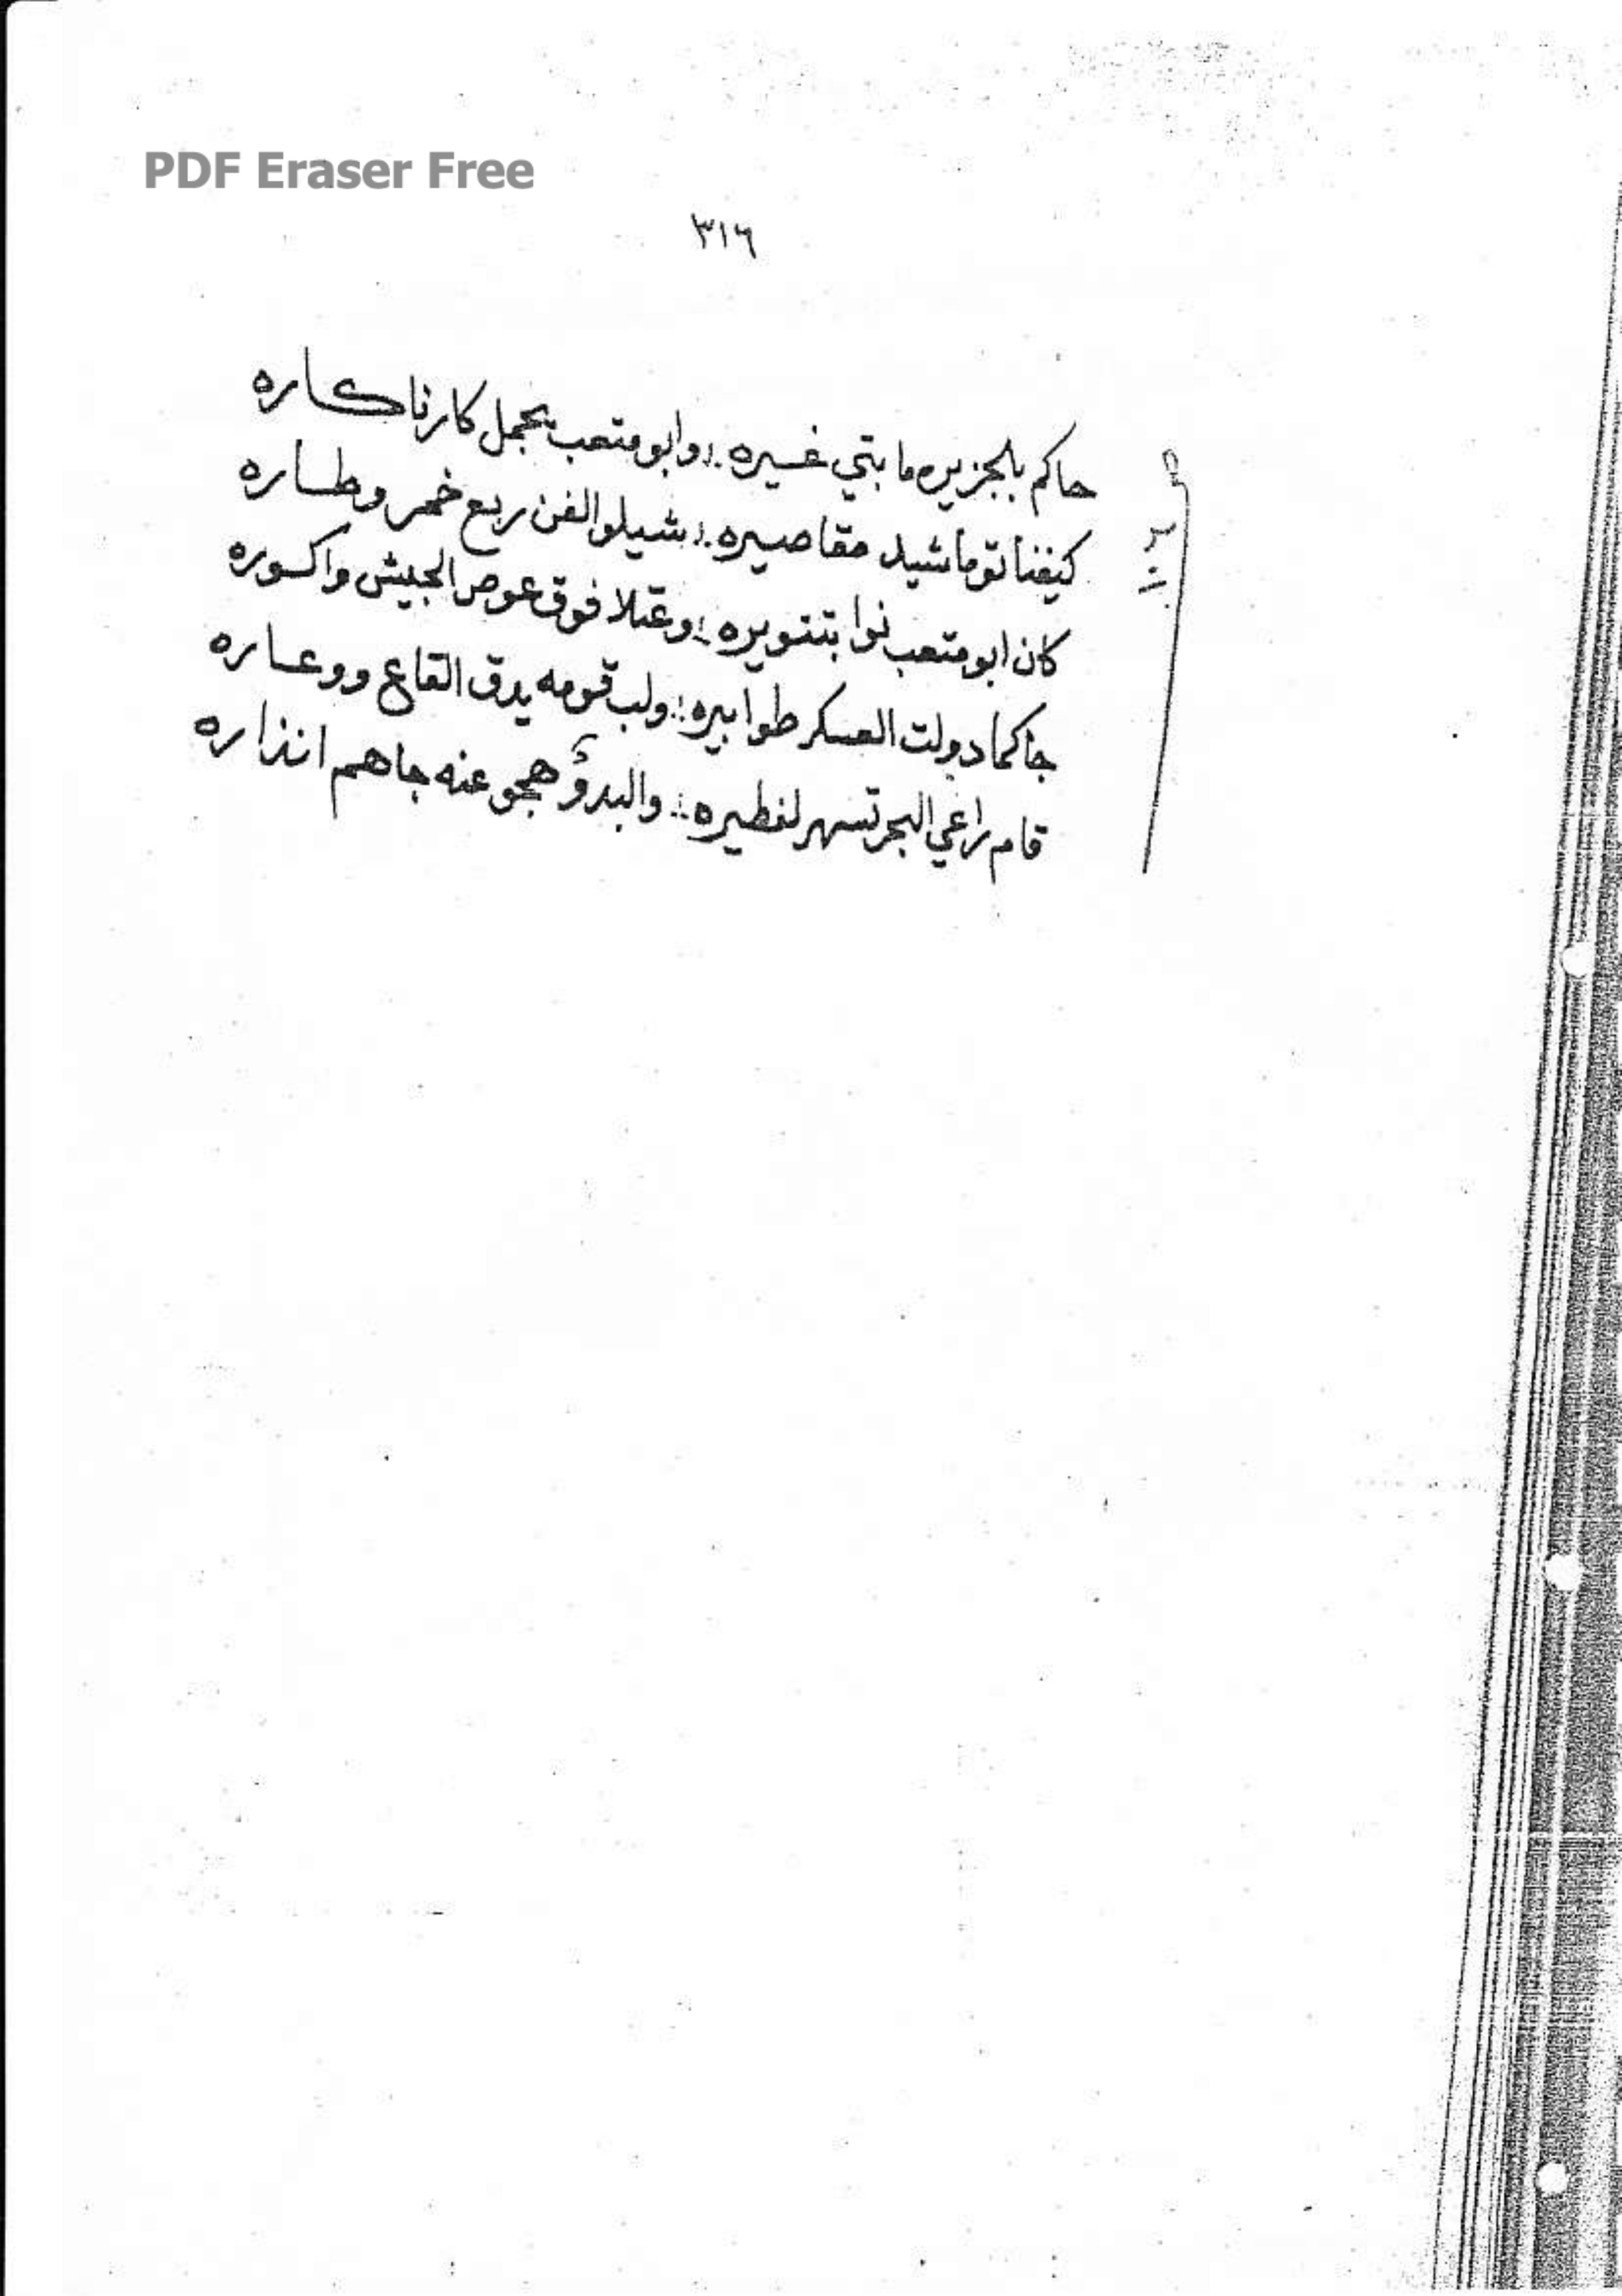 PDF Eraser Free
٣١٦
حاكم بلجزيره ما بتي غيره :: وابو متعب بجمل كارنا كاره
كيفنا توما شيد مقاصيره :: شيلوا الفن ربع خمر وطاره
كان ابو متعب نوا بتنويره :: وعتلا فوق عوص الجيش واكوره
جاكما دولت العسكر طوابيره :: ولب قومه يدق القاع ووعاره
قام راعي البحر تسهر لنطيره :: والبدؤ هجو عنه جاهم انذاره